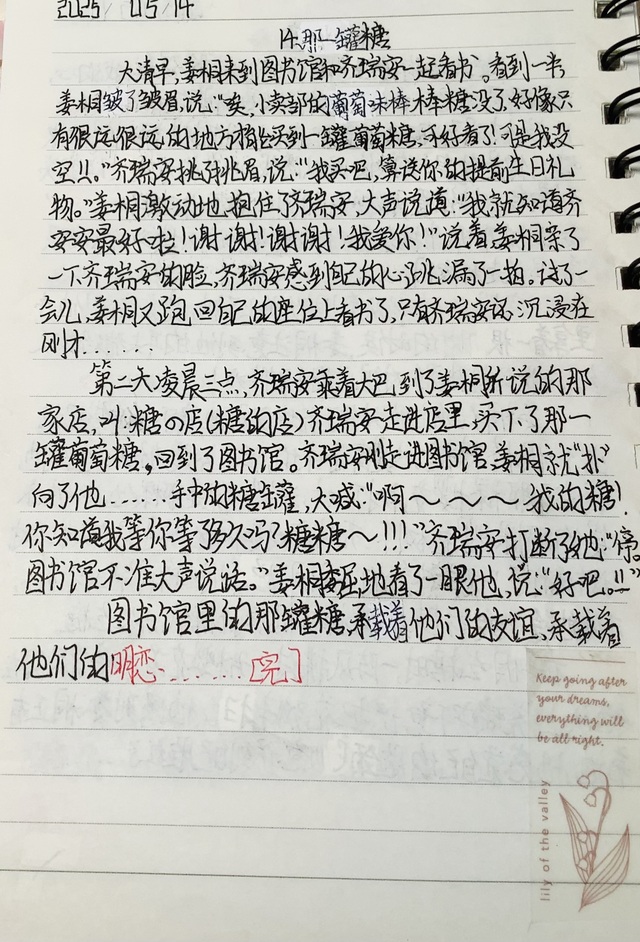 2025/ 05/14
14.那一罐糖
大清早,姜桐来到图书馆和齐瑞安一起看书。看到一半
姜桐皱了皱眉,说:“唉,小卖部的葡萄味棒棒糖没了,好像只
有很远很远的地方才能买到一罐葡萄糖,可好看了!可是我没
空!!。”齐瑞安挑了挑眉,说:“我买吧,算送你的提前生日礼
物。”姜桐激动地抱住了齐瑞安,大声说道:“我就知道齐
安安最好啦!谢谢!谢谢!我爱你!”说着姜桐亲了
一下齐瑞安的脸,齐瑞安感到自己的心跳漏了一拍。过了一
会儿,姜桐又跑回自己的座位上看书了,只有齐瑞安还沉浸在
刚才......
第二天凌晨三点,齐瑞安乘着大巴,到了姜桐所说的那
家店,叫:糖の店(糖的店)齐瑞安走进店里,买下了那一
罐葡萄糖。回到了图书馆。齐瑞安刚走进图书馆,姜桐就“扑”
向了他......手中的糖罐,大喊:“啊~~~我的糖!
你知道我等你等了多久吗?糖糖~!!!”齐瑞安打断了她:“停。
图书馆不准大声说话。”姜桐委屈地看了一眼他,说:“好吧。!!”
图书馆里的那罐糖,承载着他们的友谊,承载着
他们的明恋.......[完]
Keep going after
your dreams,
everything will
be all right.
lily of the valley